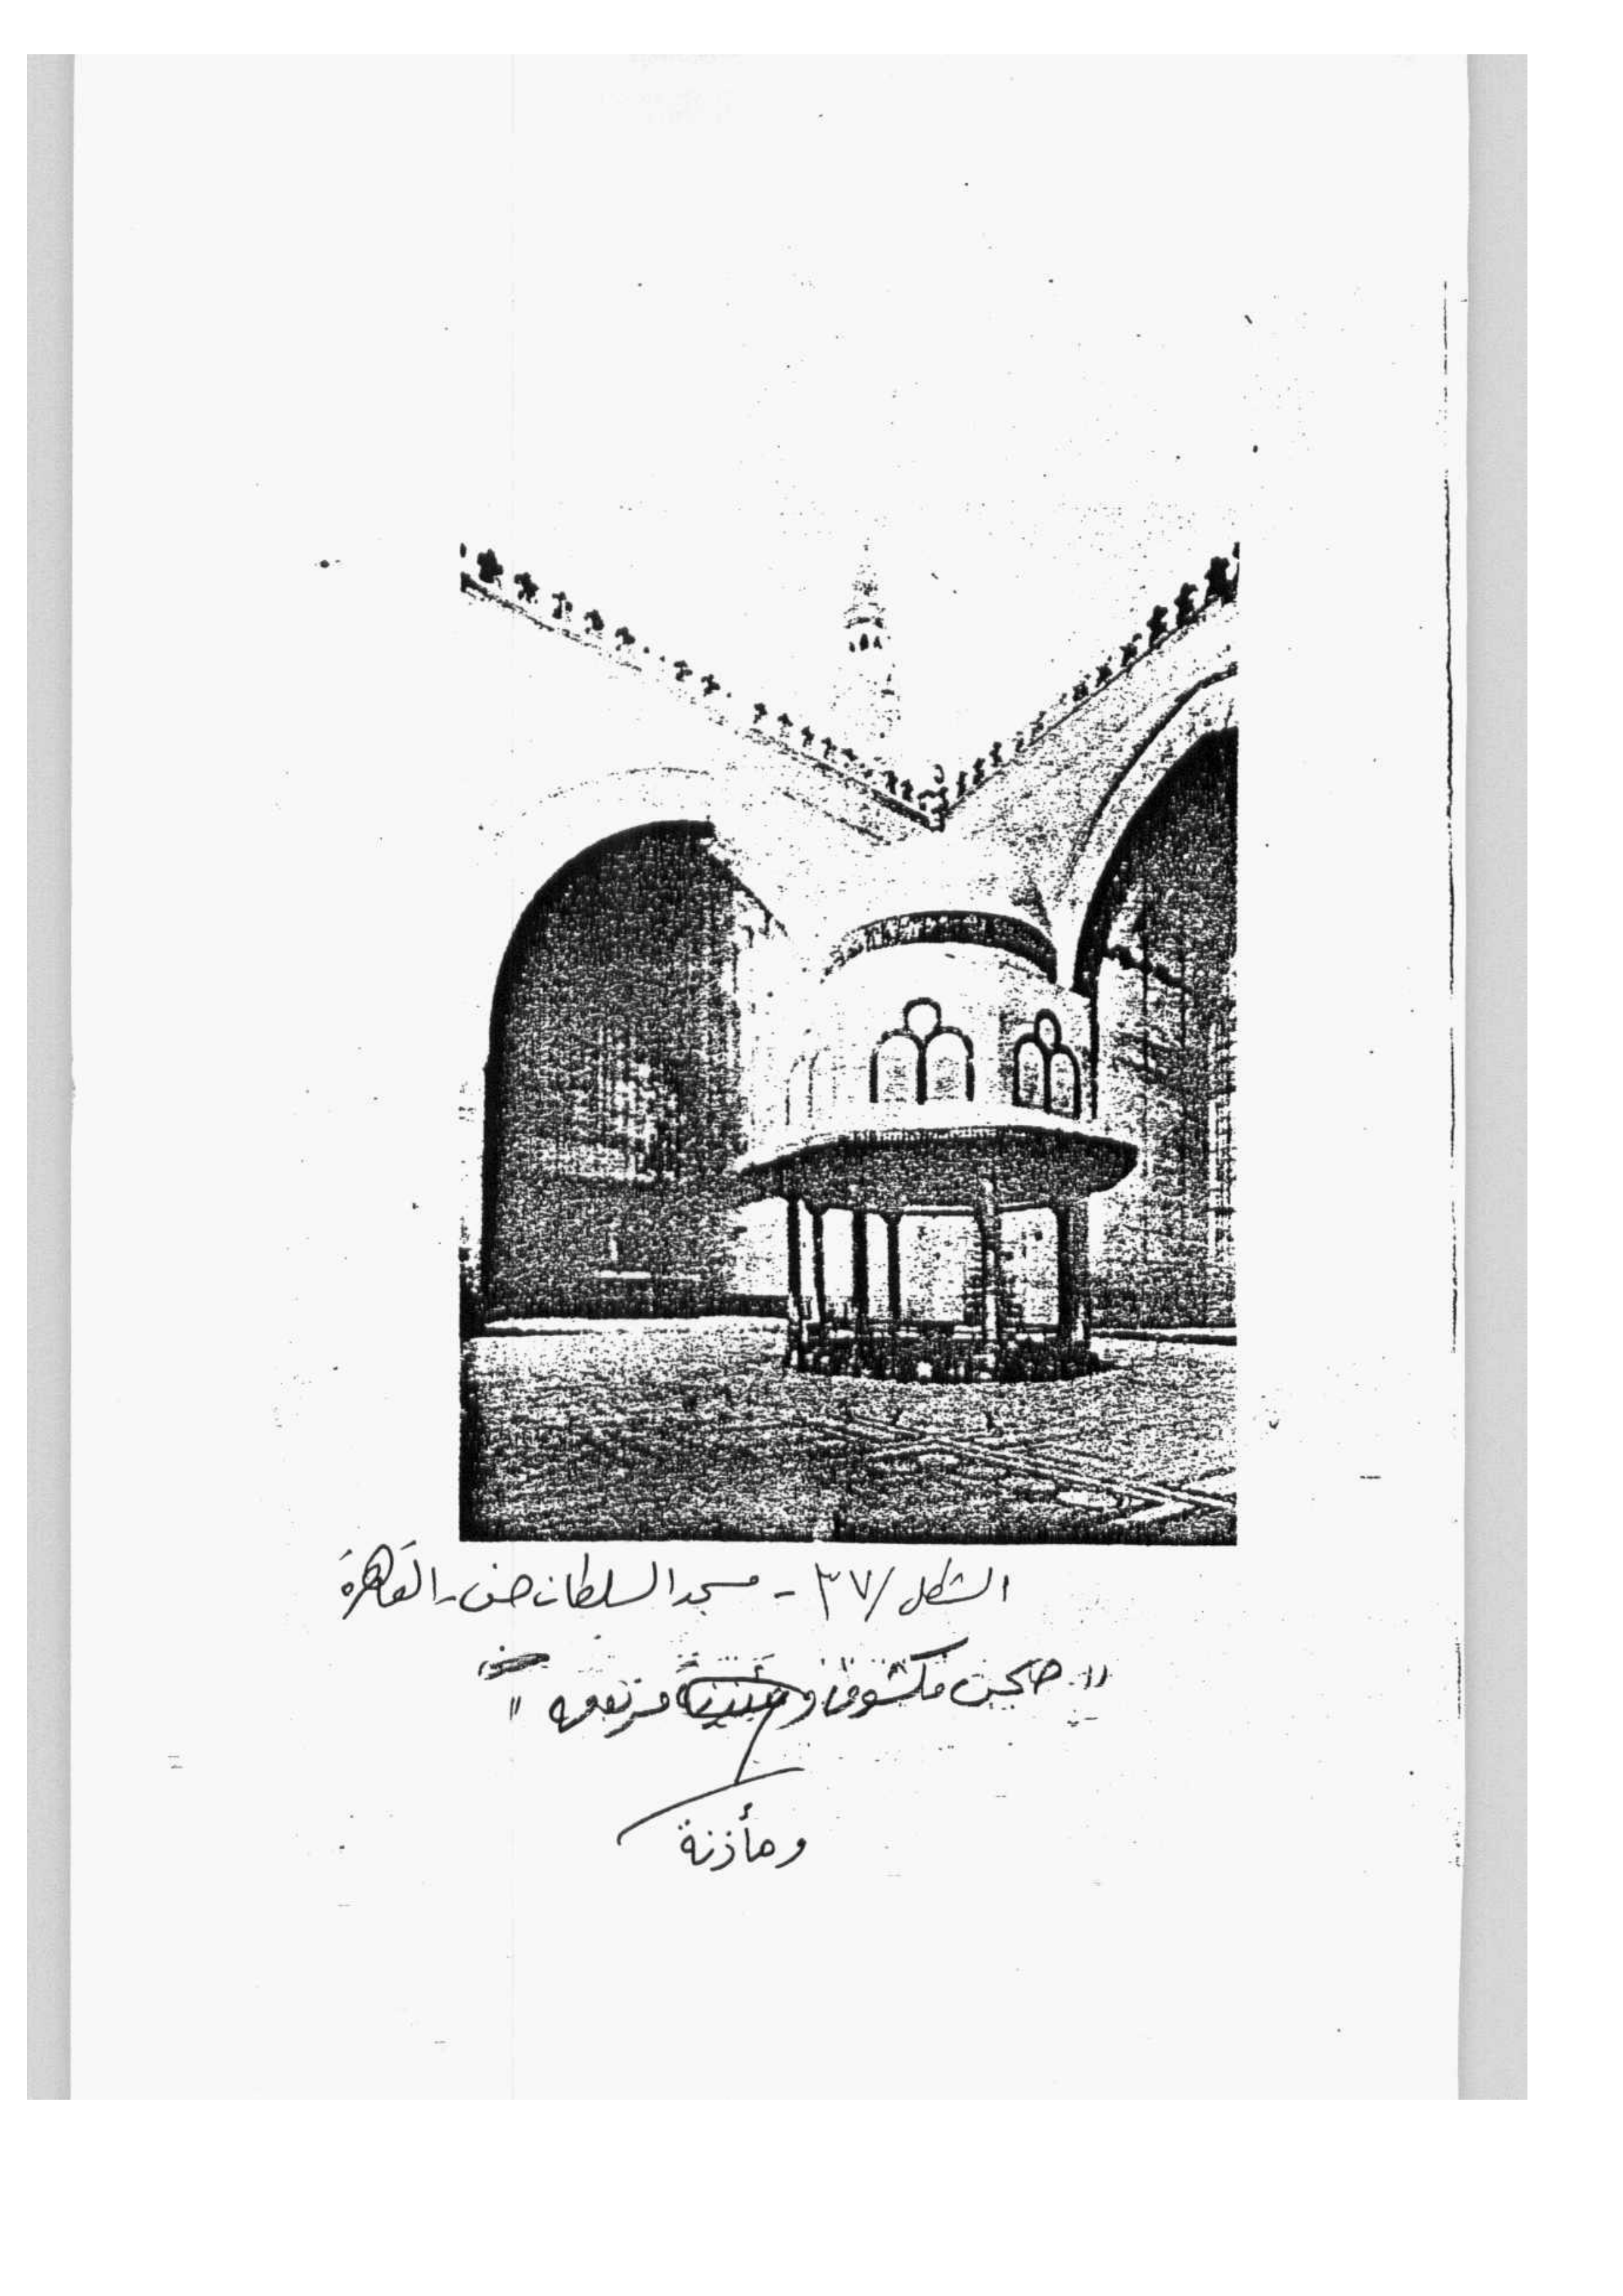 الشكل /٣٧ - مسجد السلطان حسن - القاهرة
"صحن مكشوف و مرتفعه"
ومأذنة